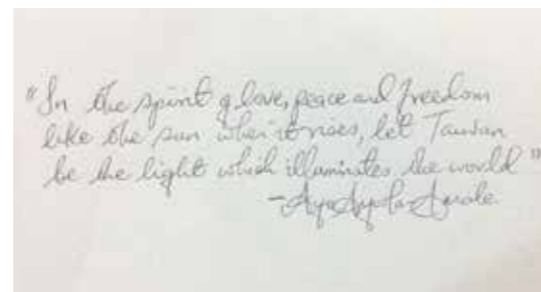 "In the spirit of love, peace and freedom
like the sun when it rises, let Taiwan
be the light which illuminates the world"